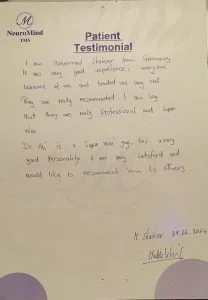 NeuroMind
TMS
Patient
Testimonial
I am Mohammad from Germany
It was very good experience. everyone
welcome at me and treated me very well
They are really recommended. I can say
that they are really Professional and super
nice
Dr Ali is a super nice guy, has a very
good personality I am very satisfied and
would like to recommend him to others